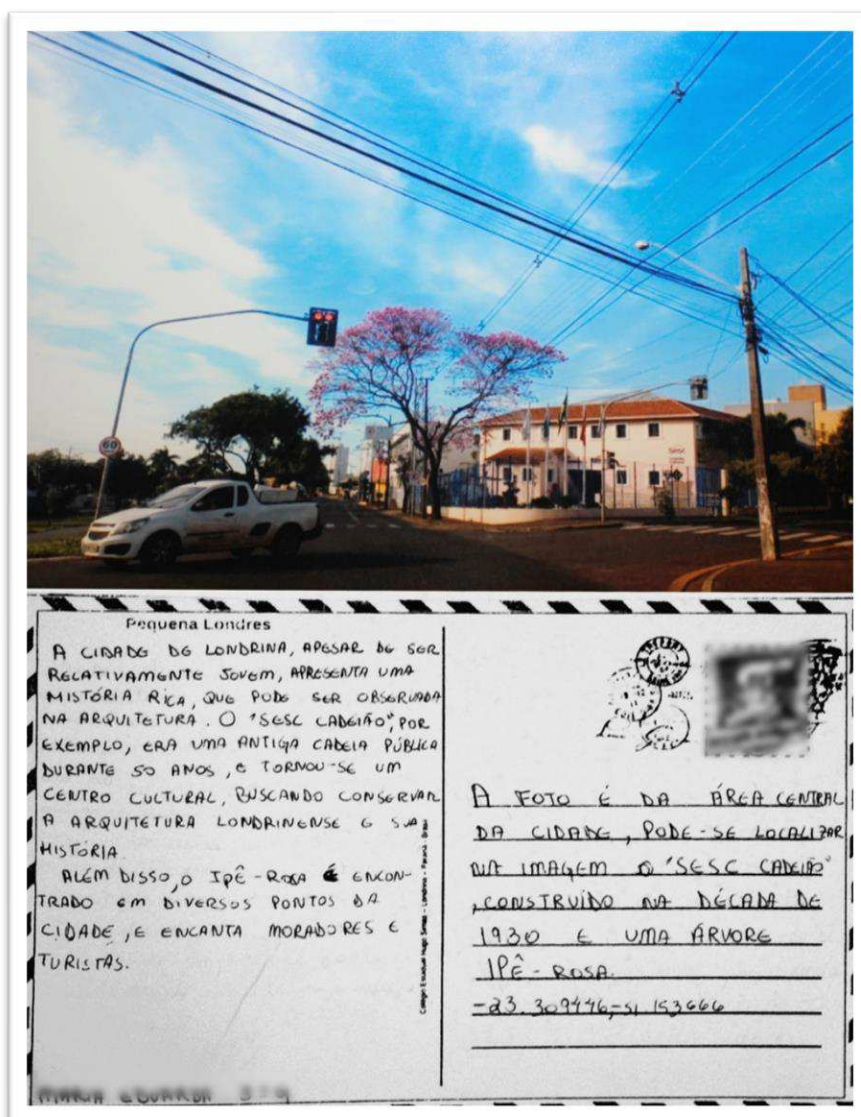 60
sesc
Pequena Londres
A CIDADE DE LONDRINA, APESAR DE SER
RELATIVAMENTE JOVEM, APRESENTA UMA
HISTÓRIA RICA, QUE PODE SER OBSERVADA
NA ARQUITETURA. O "SESC CADEIÃO", POR
EXEMPLO, ERA UMA ANTIGA CADEIA PÚBLICA
DURANTE 50 ANOS, E TORNOU-SE UM
CENTRO CULTURAL, BUSCANDO CONSERVAR
A ARQUITETURA LONDRINENSE E SUA
HISTÓRIA.
ALÉM DISSO, O IPÊ-ROSA É ENCON-
TRADO EM DIVERSOS PONTOS DA
CIDADE, E ENCANTA MORADORES E
TURISTAS.
MARIA EDUARDA
Colégio Estadual Hugo Simas - Londrina - Paraná - Brasil
A FOTO É DA ÁREA CENTRAL
DA CIDADE, PODE-SE LOCALIZAR
NA IMAGEM O "SESC CADEIÃO"
, CONSTRUÍDO NA DÉCADA DE
1930 E UMA ÁRVORE
IPÊ-ROSA.
-23.309446,-51.153666